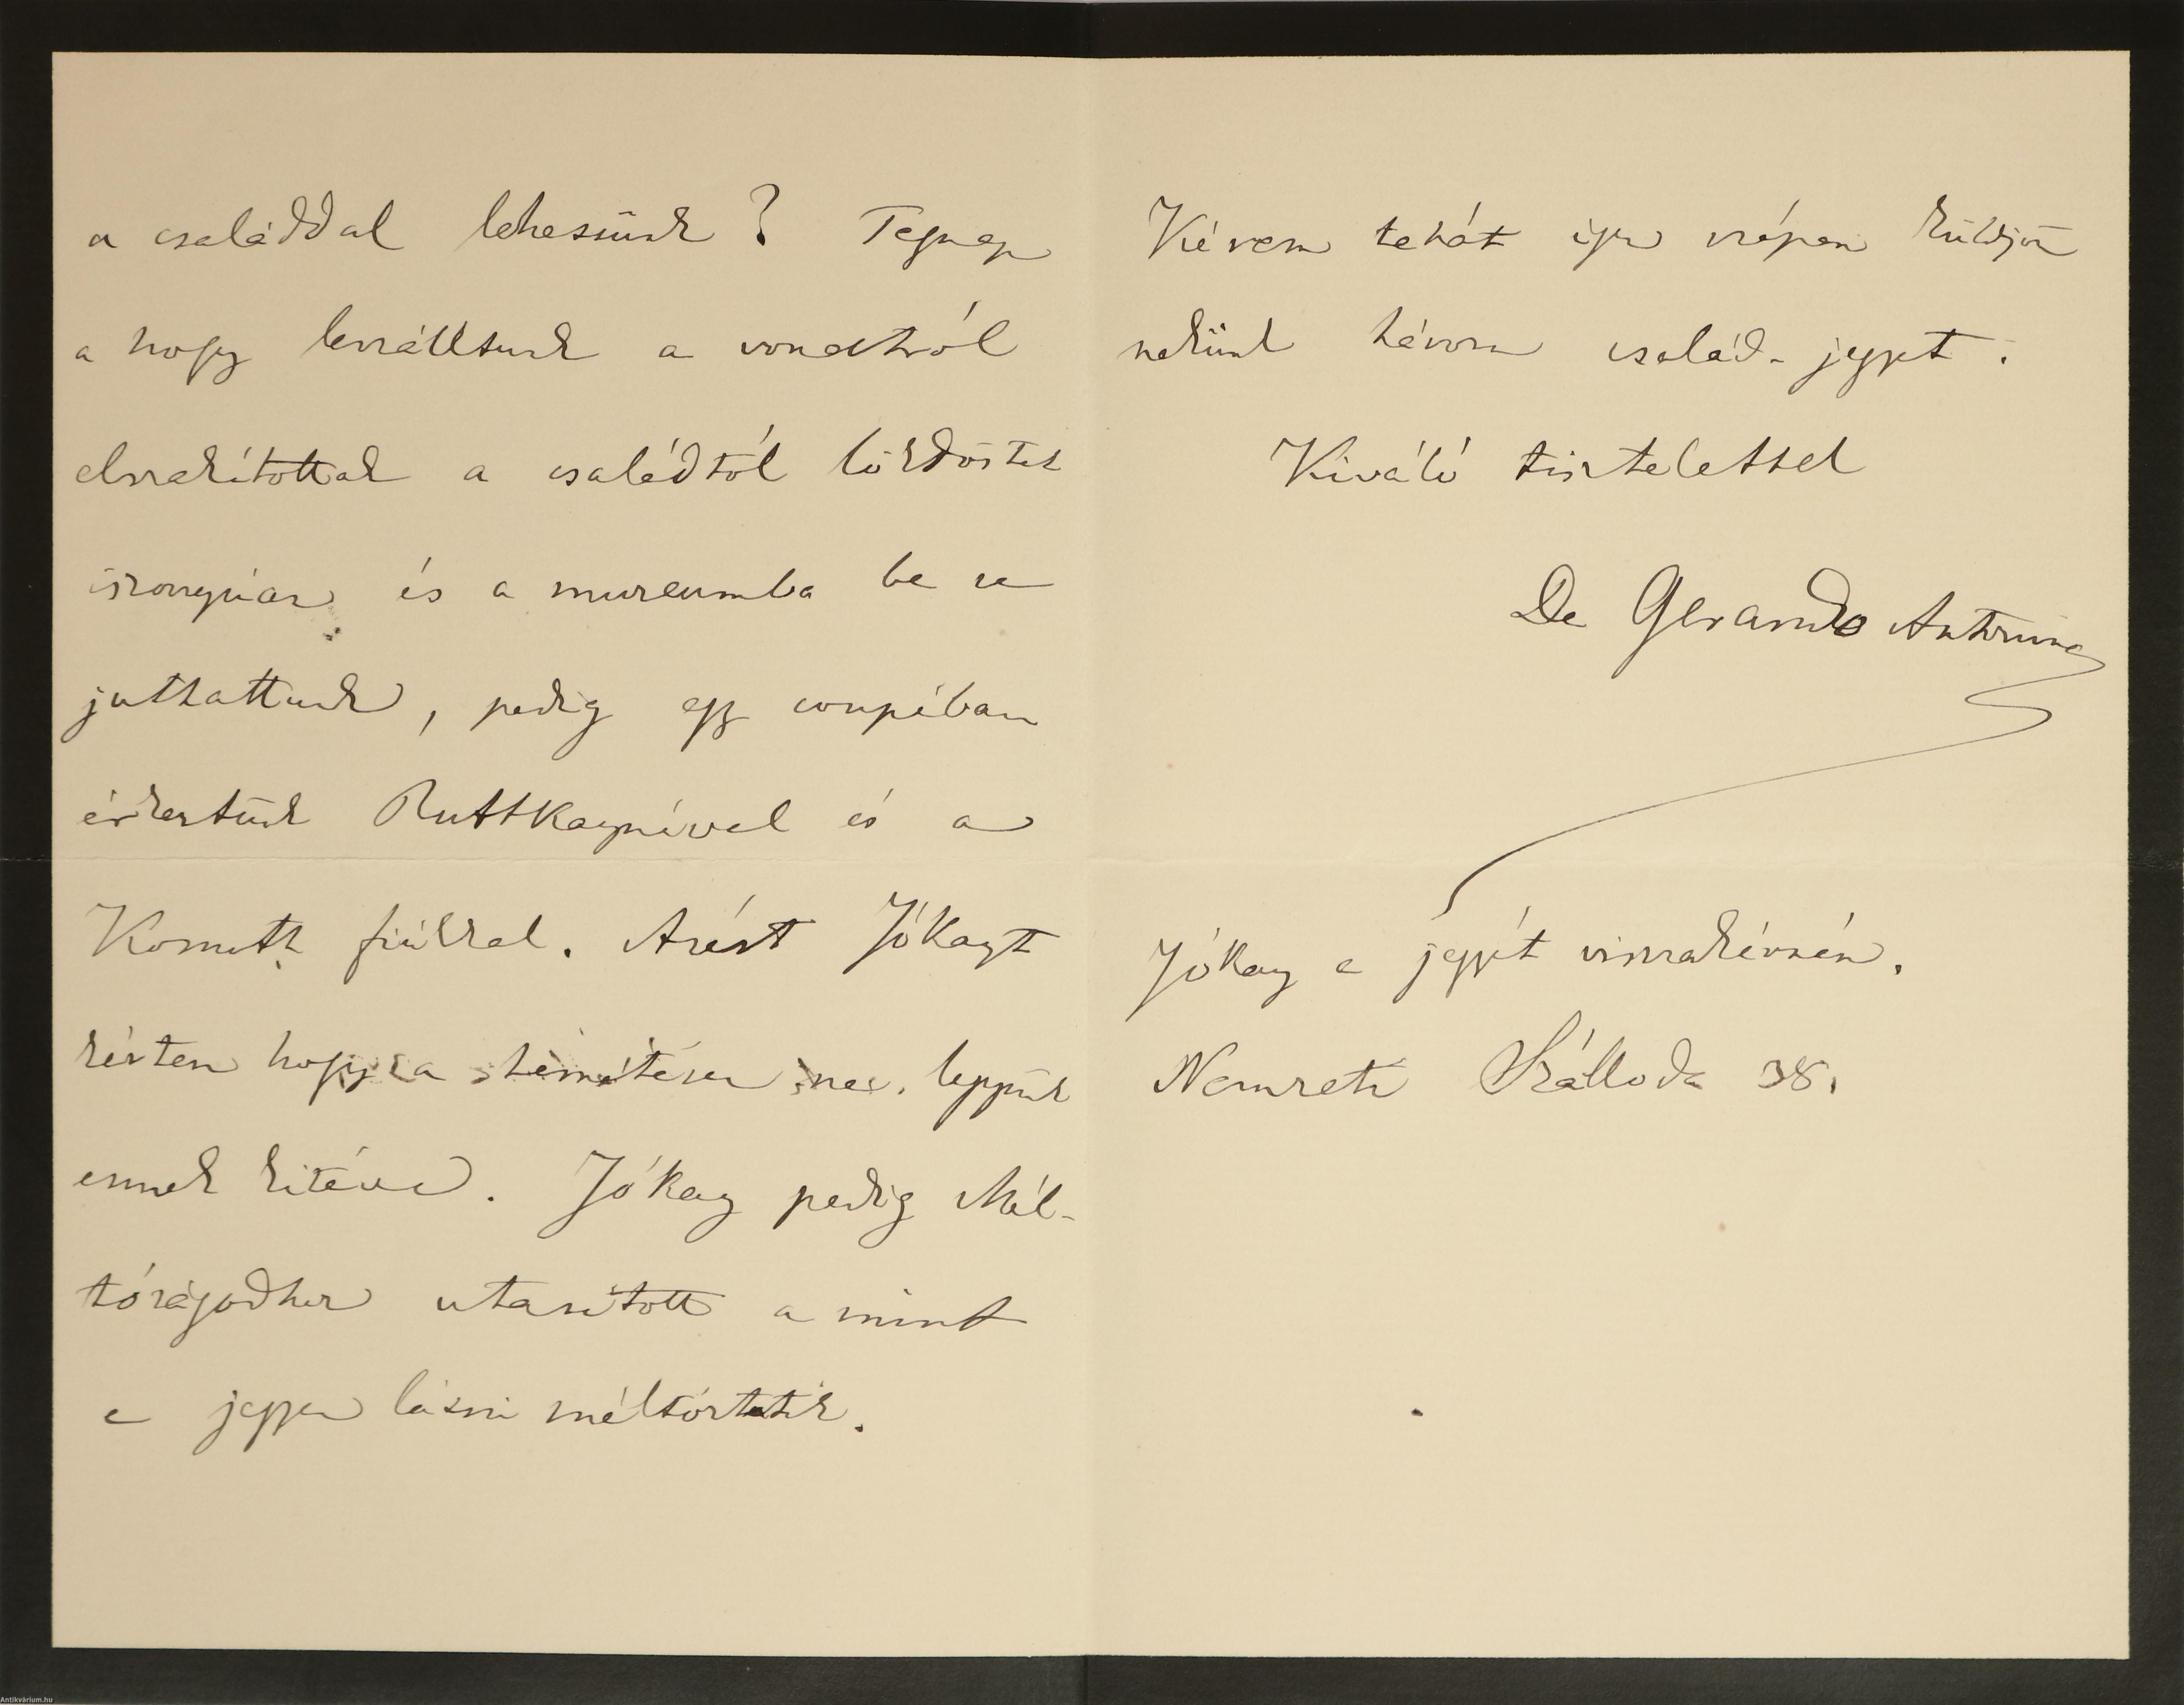 a családdal lehessünk? Tegnap
a hogy leszálltunk a vonatról
elszakítottak a családtól lökdöstek
iszonyúan és a muzeumba be se
juthattunk, pedig egy coupéban
érkeztünk Ruttkaynéval és a
Kossuth fiúkkal. Azért Jókayt
kértem hogy a temetésen ne legyünk
ennek kitéve. Jókay pedig Mél-
tóságodhoz utasított a mint
e jegyen látni méltóztatik.
Kérem tehát igen szépen küldjön
nekünk három család-jegyet.
Kiváló tisztelettel
De Gerando Antonina
Jókay e jegyét visszakérném.
Nemzeti Szálloda 38.
Antikvárium.hu